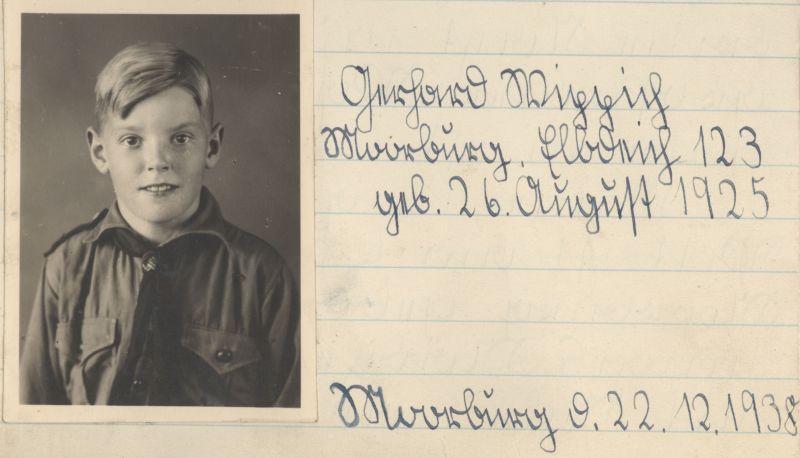 Gerhard Wippich
Moorburg, Elbdeich 123
geb. 26. August 1925
Moorburg d. 22. 12. 1938